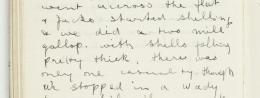 went across the flat
& Jacko started shelling
& we did a two mile
gallop. with shells falling
pretty thick, there was
only one casualty. though
at stopped in a wady